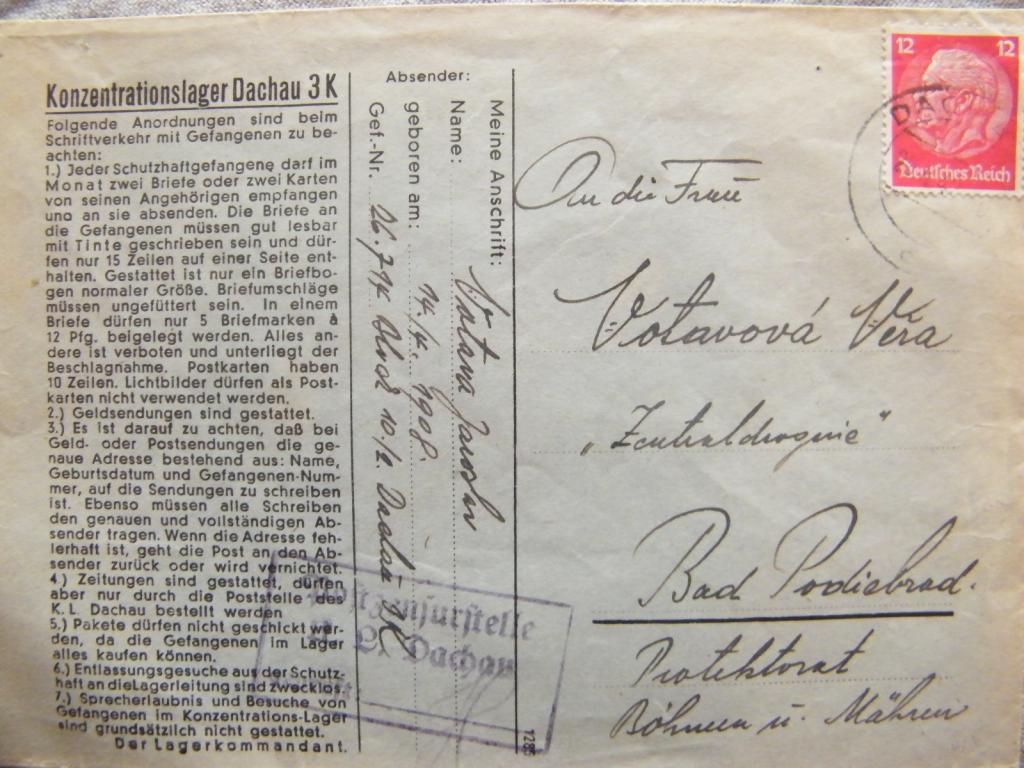 Konzentrationslager Dachau 3 K
Folgende Anordnungen sind beim
Schriftverkehr mit Gefangenen zu be-
achten:
1.) Jeder Schutzhaftgefangene darf im
Monat zwei Briefe oder zwei Karten
von seinen Angehörigen empfangen
uno an sie absenden. Die Briefe an
die Gefangenen müssen gut lesbar
mit Tinte geschrieben sein und dür-
fen nur 15 Zeilen auf einer Seite ent-
halten. Gestattet ist nur ein Briefbo-
gen normaler Größe. Briefumschläge
müssen ungefüttert sein. In einem
Briefe dürfen nur 5 Briefmarken à
12 Pfg. beigelegt werden. Alles an-
dere ist verboten und unterliegt der
Beschlagnahme. Postkarten haben
10 Zeilen. Lichtbilder dürfen als Post-
karten nicht verwendet werden.
2.) Geldsendungen sind gestattet.
3.) Es ist darauf zu achten, daß bei
Geld- oder Postsendungen die ge-
naue Adresse bestehend aus: Name,
Geburtsdatum und Gefangenen-Num-
mer, auf die Sendungen zu schreiben
ist. Ebenso müssen alle Schreiben
den genauen und vollständigen Ab-
sender tragen. Wenn die Adresse feh-
lerhaft ist, geht die Post an den Ab-
sender zurück oder wird vernichtet.
4.) Zeitungen sind gestattet, dürfen
aber nur durch die Poststelle des
K. L. Dachau bestellt werden
5.) Pakete dürfen nicht geschickt wer-
den, da die Gefangenen im Lager
alles kaufen können.
6.) Entlassungsgesuche aus der Schutz-
haft an die Lagerleitung sind zwecklos.
7.) Sprecherlaubnis und Besuche von
Gefangenen im Konzentrations-Lager
sind grundsätzlich nicht gestattet.
Der Lagerkommandant.
Absender:
Meine Anschrift:
Name: Votava Jaroslav
geboren am: 14./4. 1908.
Gef.-Nr. 26.714. Block 10/2. Dachau 3K
Postzensurstelle
K. L. Dachau
1285
12 12
Deutsches Reich
DAC
An die Frau
Votavová Věra
„Zentraldrogerie"
Bad Podiebrad.
Protektorat
Böhmen u. Mähren